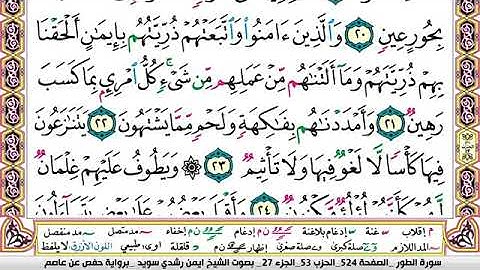 بِحُورٍ عِينٍ ٢٠ وَٱلَّذِينَ ءَامَنُوا۟ وَٱتَّبَعَتْهُمْ ذُرِّيَّتُهُم بِإِيمَـٰنٍ أَلْحَقْنَا
بِهِمْ ذُرِّيَّتَهُمْ وَمَآ أَلَتْنَـٰهُم مِّنْ عَمَلِهِم مِّن شَىْءٍ ۚ كُلُّ ٱمْرِئٍۭ بِمَا كَسَبَ
رَهِينٌ ٢١ وَأَمْدَدْنَـٰهُم بِفَـٰكِهَةٍ وَلَحْمٍ مِّمَّا يَشْتَهُونَ ٢٢ يَتَنَـٰزَعُونَ
فِيهَا كَأْسًا لَّا لَغْوٌ فِيهَا وَلَا تَأْثِيمٌ ٢٣ ۞ وَيَطُوفُ عَلَيْهِمْ غِلْمَانٌ
لَّهُمْ كَأَنَّهُمْ لُؤْلُؤٌ مَّكْنُونٌ ٢٤ وَأَقْبَلَ بَعْضُهُمْ عَلَىٰ بَعْضٍ يَتَسَآءَلُونَ
إقلاب غنة إدغام بلاغنة إدغام إخفاء مد متصل مد منفصل
المد اللازم صلة كبرى صلة صغرى إظهار قلقلة طبيعي اللون الأزرق لا يلفظ
سورة الطور _الصفحة 524_الحزب 53_الجزء 27_ بصوت الشيخ ايمن رشدي سويد _برواية حفص عن عاصم